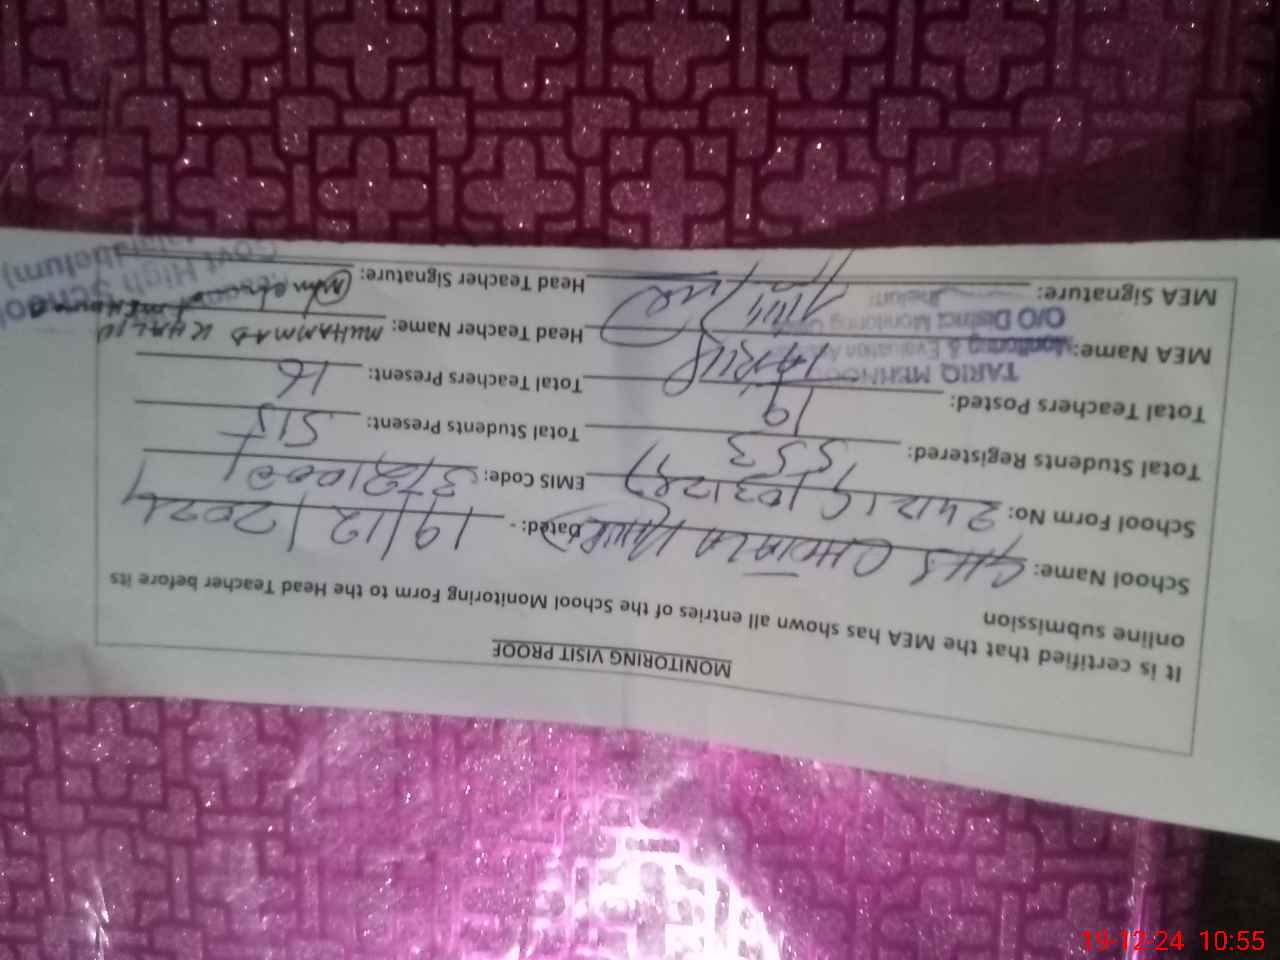 MONITORING VISIT PROOF
It is certified that the MEA has shown all entries of the School Monitoring Form to the Head Teacher before its
online submission
School Name: GHS Dated: - 19/12/2024
School Form No: EMIS Code:
Total Students Registered: 553 Total Students Present: 515
Total Teachers Posted: 19 Total Teachers Present: 16
TARIQ MEHMOOD
MEA Name: TARIQ Head Teacher Name: MUHAMMAD KHALID
Monitoring & Evaluation
O/O District Monitoring
Jhelum
MEA Signature: Head Teacher Signature:
Govt High School
(Jhelum)
19-12-24 10:55